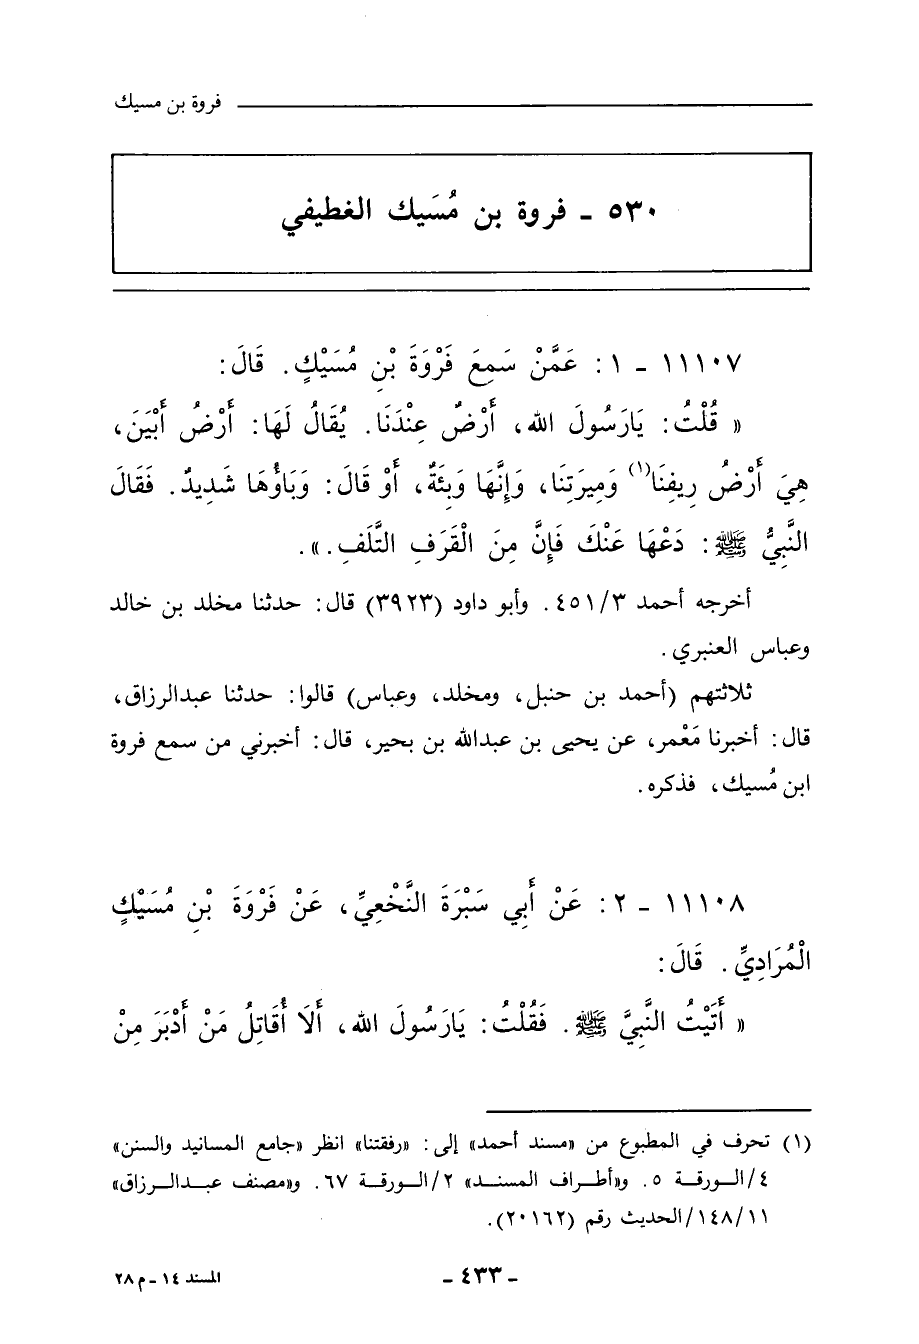 فروة بن مسيك
٥٣٠ - فروة بن مُسَيك الغطيفي
١١١٠٧ - ١ : عَمَّنْ سَمِعَ فَرْوَةَ بْنِ مُسَيْكٍ . قَالَ :
« قُلْتُ : يَارَسُولَ الله ، أَرْضٌ عِنْدَنَا . يُقَالُ لَهَا : أَرْضُ أَبْيَنَ ،
هِيَ أَرْضُ رِيفِنَا(١) وَمِيرَتِنَا ، وَإِنَّهَا وَبِئَةٌ ، أَوْ قَالَ : وَبَاؤُهَا شَدِيدٌ . فَقَالَ
النَّبِيُّ ﷺ : دَعْهَا عَنْكَ فَإِنَّ مِنَ الْقَرَفِ التَّلَفِ . » .
أخرجه أحمد ٤٥١/٣ . وأبو داود (٣٩٢٣) قال : حدثنا مخلد بن خالد
وعباس العنبري .
ثلاثتهم (أحمد بن حنبل ، ومخلد ، وعباس) قالوا : حدثنا عبدالرزاق ،
قال : أخبرنا مَعْمر ، عن يحيى بن عبدالله بن بحير ، قال : أخبرني من سمع فروة
ابن مُسيك ، فذكره .
١١١٠٨ - ٢ : عَنْ أَبِي سَبْرَةَ النَّخْعِيِّ ، عَنْ فَرْوَةَ بْنِ مُسَيْكٍ
الْمُرَادِيِّ . قَالَ :
« أَتَيْتُ النَّبِيَّ ﷺ . فَقُلْتُ : يَارَسُولَ الله ، أَلَا أُقَاتِلُ مَنْ أَدْبَرَ مِنْ
(١) تحرف في المطبوع من «مسند أحمد» إلى : «رفقتنا» انظر «جامع المسانيد والسنن»
٤/الورقة ٥ . و«أطراف المسند» ٢/الورقة ٦٧ . و«مصنف عبدالرزاق»
١٤٨/١١/الحديث رقم (٢٠١٦٢) .
- ٤٣٣ -
المسند ١٤ - م ٢٨